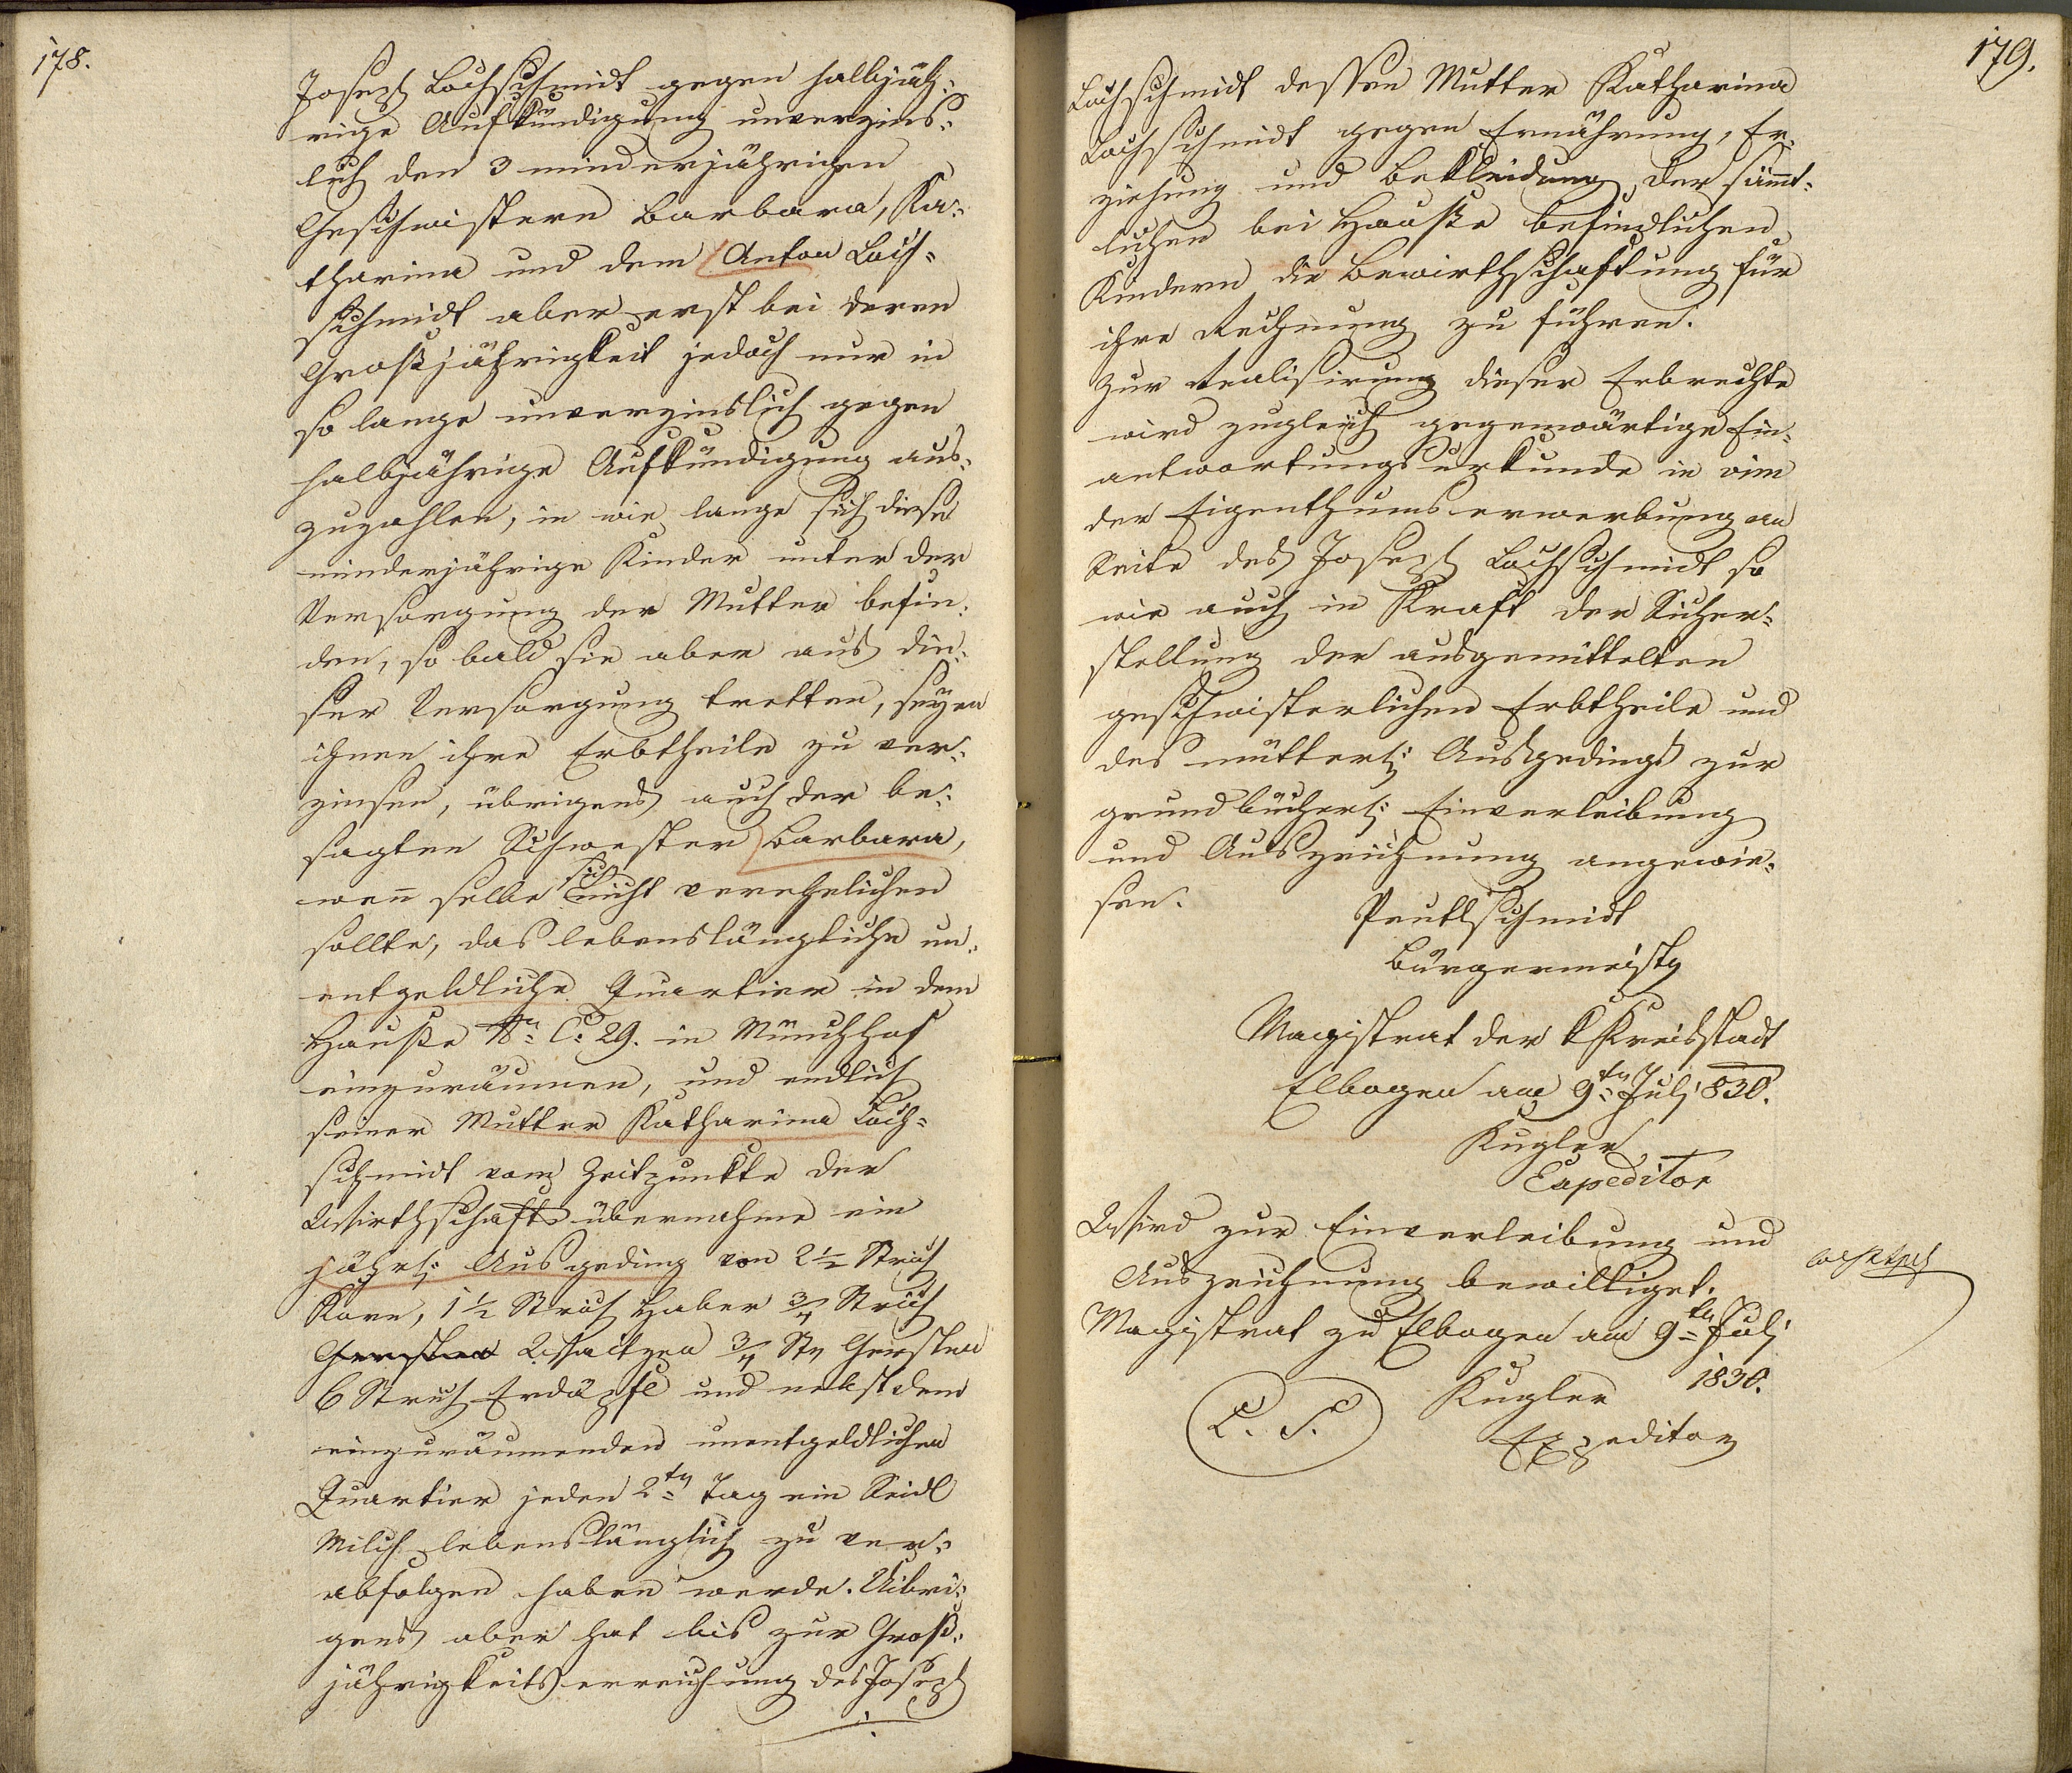 178.
Joseph Lochschmidt gegen halbjäh=
rige Aufkündigung unverzins=
lich den 3 minderjährigen
Geschwistern Barbara, Ka=
tharina und dem Anton Loch=
schmidt aber erst bei deren
Großjährigkeit jedoch nur in
so lange unverzinslich gegen
halbjährige Aufkündigung aus=
zuzahlen, in wie lange sich diese
minderjährige Kinder unter der
Versorgung der Mutter befin=
den, so bald sie aber aus die=
ser Versorgung tretten, seyen
ihnen ihre Erbtheile zu ver=
zinsen, übrigens auch der be=
sagten Schwester Barbara,
wen̄ selbe sich nicht verehelichen
sollte, das lebenslängliche un=
entgeldliche Quartier in dem
Hauße N: C: 29. in Münchhof
einzuräumen, und endlich
seiner Mutter Katharina Loch=
schmidt vom Zeitpunkte der
Wirthschaftsübernahme ein
jährl: Ausgeding von 2½ Strich
Korn, 1½ Strich Haber ¾ Strich
Gersten Waitzen ¾ Str Gersten
6 Strich Erdäpfl und nebst dem
einzuräumenden unentgeldlichen
Quartier jeden 2ten Tag ein Seidl
Milch lebenslänglich zu ver=
abfolgen haben werde. Uibri=
gens aber hat bis zur Groß=
jährigkeitserreichung des Joseph
179.
Lochschmidt dessen Mutter Katharina
Lochschmidt gegen Ernährung, Er=
ziehung und Bekleidung der sām̄t=
lichen bei Hauße befindlichen
Kindern die Bewirthschaftung für
ihre Rechnung zu führen.
Zur Realisirung dieser Erbrechte
wird zugleich gegenwärtige Ein=
antwortungsurkunde in vim
der Eigenthumserwerbung an
Seite des Joseph Lochschmidt so
wie auch in Kraft der Sicher=
stellung der ausgemittelten
geschwisterlichen Erbtheile und
des mütterl: Ausgedings zur
grundbücherl: Einverleibung
und Auszeichnung angewie=
sen.
Peutlschmidt
Bürgermeister
Magistrat der k Kreisstadt
Elbogen am 9ten Juli 830.
Kugler
Expeditor
Wird zur Einverleibung und
Auszeichnung bewilliget.
Magistrat zu Elbogen am 9ten Juli
1830.
L. S.
Kugler
Expeditor